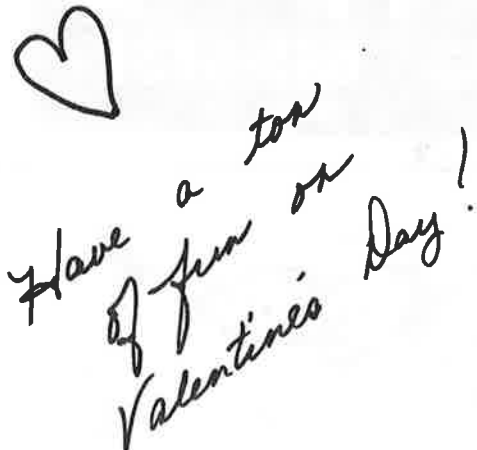 Have a ton
of fun on
Valentine's Day!